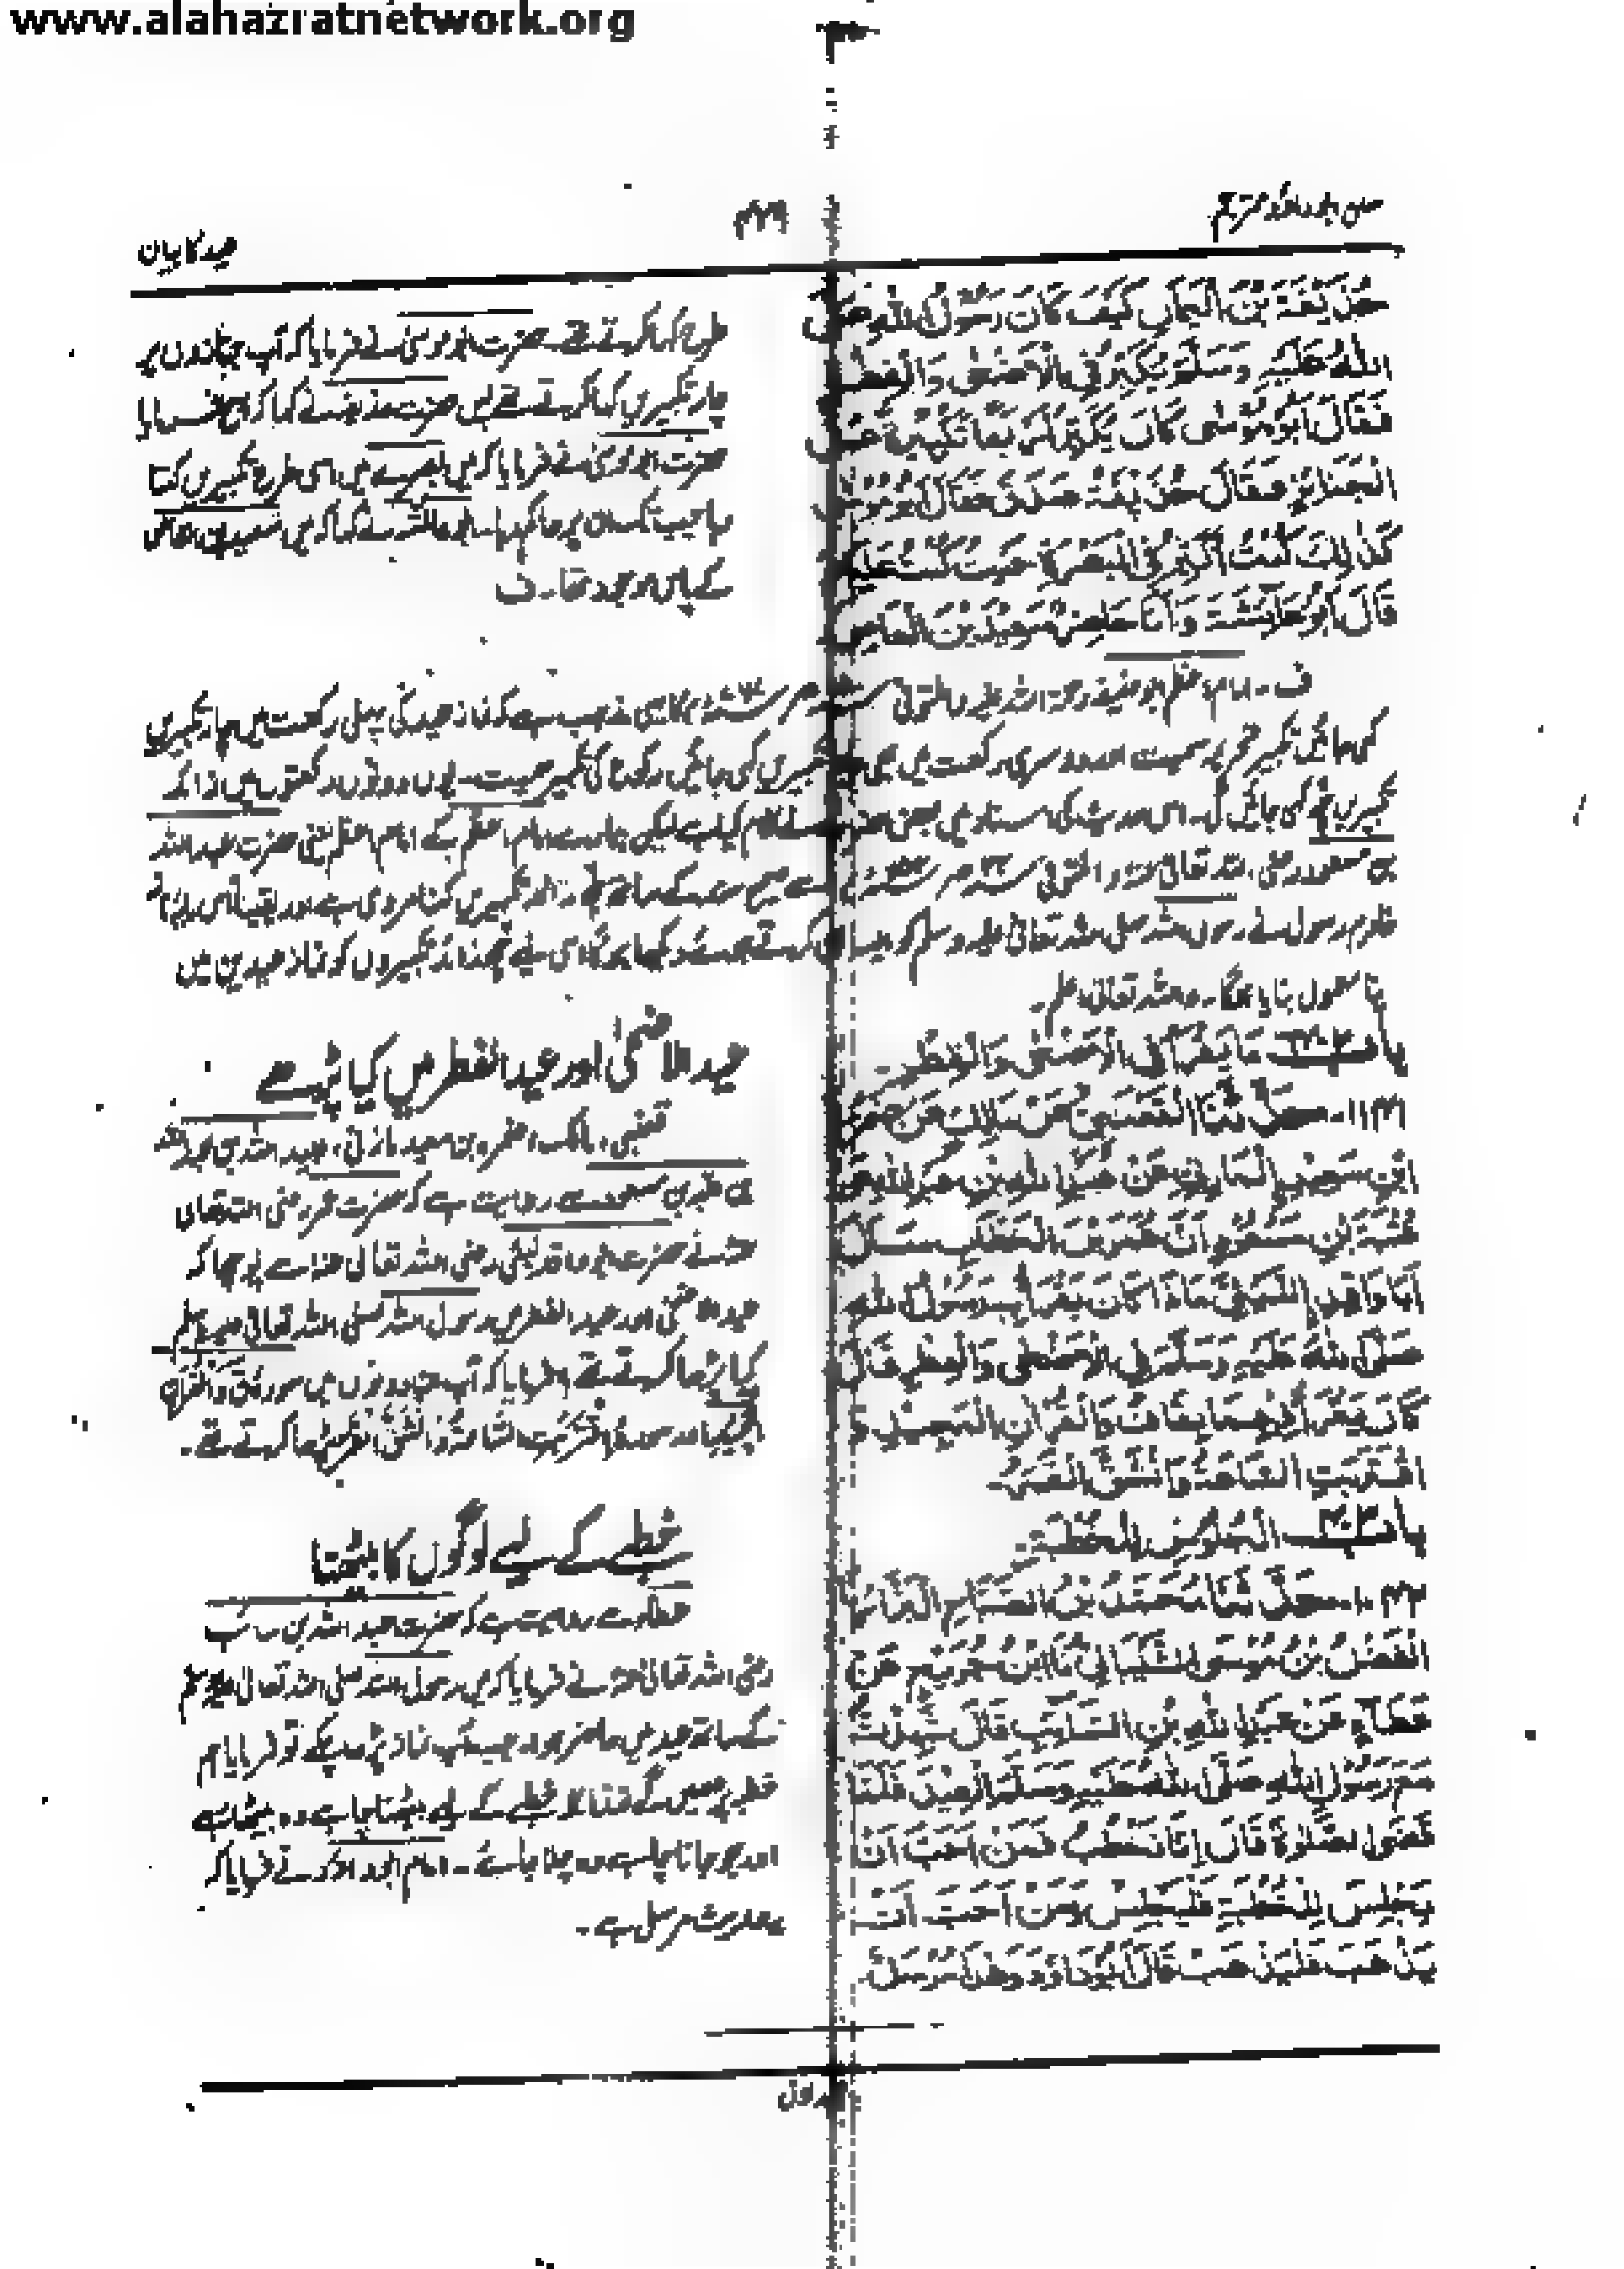 www.alahazratnetwork.org
سنن ابوداؤد مترجم
۴۳۱
عید کا بیان
حُذَيْفَةَ بْنَ الْيَمَانِ كَيْفَ كَانَ رَسُوْلُ اللهِ صَلَّى
اللهُ عَلَيْهِ وَسَلَّمَ يُكَبِّرُ فِي الْاَضْحٰى وَالْفِطْرِ
فَقَالَ اَبُوْ مُوْسٰى كَانَ يُكَبِّرُ اَرْبَعًا تَكْبِيْرَهٗ عَلَى
الْجَنَائِزِ فَقَالَ حُذَيْفَةُ صَدَقَ فَقَالَ اَبُوْ مُوْسٰى
كَذٰلِكَ كُنْتُ اُكَبِّرُ فِي الْبَصْرَةِ حَيْثُ كُنْتُ عَلَيْهِمْ
قَالَ اَبُوْ عَائِشَةَ وَاَنَا حَاضِرٌ سَعِيْدَ بْنَ الْعَاصِ
طرح کہا کرتے تھے حضرت ابو موسیٰ نے فرمایا کہ آپ جنازوں پر
چار تکبیریں کہا کرتے تھے پس حضرت حذیفہ نے کہا کہ سچ فرمایا
حضرت ابو موسیٰ نے فرمایا کہ میں بصرے میں اسی طرح تکبیریں کہتا
رہا جب تک وہاں پر حاکم رہا۔ ابو عائشہ نے کہا کہ میں سعید بن العاص
کے پاس موجود تھا۔ ف
ف۔ امام اعظم ابو حنیفہ رحمۃ اللہ علیہ المتوفی کا یہی مذہب ہے کہ نماز عید کی پہلی رکعت میں چار تکبیریں
کہی جائیں تکبیر تحریمہ سمیت اور دوسری رکعت میں بھی تکبیریں کہی جائیں رکوع کی تکبیر سمیت۔ یوں دونوں رکعتوں میں زائد
تکبیریں چھ کہی جائیں گی۔ اس حدیث کی اسناد میں بعض نے کلام کیا ہے لیکن ہمارے امام اعظم کے امام اعظم یعنی حضرت عبد اللہ
بن مسعود رضی اللہ تعالیٰ عنہ المتوفی سے صحیح سند کے ساتھ چھ زائد تکبیریں کہنا مروی ہے اور یقیناً اس
خادم رسول نے رسول اللہ صلی اللہ تعالیٰ علیہ وسلم کو ایسا ہی کرتے ہوئے دیکھا ہوگا اسی لیے چھ زائد تکبیروں کو نماز عیدین میں
اپنا معمول بنایا ہوگا۔ واللہ تعالیٰ اعلم۔
بَاب مَا يُقْرَأُ فِي الْاَضْحٰى وَالْفِطْرِ
۱۱۴۱۔ حَدَّثَنَا الْقَعْنَبِيُّ عَنْ مَالِكٍ عَنْ ضَمْرَةَ
ابْنِ سَعِيْدٍ الْمَازِنِيِّ عَنْ عُبَيْدِ اللهِ بْنِ عَبْدِ اللهِ بْنِ
عُتْبَةَ بْنِ مَسْعُوْدٍ اَنَّ عُمَرَ بْنَ الْخَطَّابِ سَاَلَ
اَبَا وَاقِدٍ اللَّيْثِيَّ مَاذَا كَانَ يَقْرَأُ بِهٖ رَسُوْلُ اللهِ
صَلَّى اللهُ عَلَيْهِ وَسَلَّمَ فِي الْاَضْحٰى وَالْفِطْرِ قَالَ
كَانَ يَقْرَأُ فِيْهِمَا بِقَافْ وَالْقُرْاٰنِ الْمَجِيْدِ وَ
اقْتَرَبَتِ السَّاعَةُ وَانْشَقَّ الْقَمَرُ۔
عید الاضحیٰ اور عید الفطر میں کیا پڑھے
قعنبی، مالک، ضمرہ بن سعید مازنی، عبید اللہ بن عبد اللہ
بن عتبہ بن مسعود سے روایت ہے کہ حضرت عمر رضی اللہ تعالیٰ
عنہ نے حضرت ابو واقد لیثی رضی اللہ تعالیٰ عنہ سے پوچھا کہ
عید الاضحیٰ اور عید الفطر میں رسول اللہ صلی اللہ تعالیٰ علیہ وسلم
کیا پڑھا کرتے تھے؟ فرمایا کہ آپ ان دونوں میں سورۂ قٓ وَالْقُرْاٰنِ
الْمَجِيْد اور سورۂ اقْتَرَبَتِ السَّاعَةُ وَانْشَقَّ الْقَمَرُ پڑھا کرتے تھے۔
بَاب الْجُلُوْسِ لِلْخُطْبَةِ
۱۱۴۲۔ حَدَّثَنَا مُحَمَّدُ بْنُ الصَّبَّاحِ الْبَزَّازُ نَا
الْفَضْلُ بْنُ مُوْسَى السِّيْنَانِيُّ نَا ابْنُ جُرَيْجٍ عَنْ
عَطَاءٍ عَنْ عَبْدِ اللهِ بْنِ السَّائِبِ قَالَ شَهِدْتُّ
مَعَ رَسُوْلِ اللهِ صَلَّى اللهُ عَلَيْهِ وَسَلَّمَ الْعِيْدَ فَلَمَّا
قَضَى الصَّلٰوةَ قَالَ اِنَّا نَخْطُبُ فَمَنْ اَحَبَّ اَنْ
يَّجْلِسَ لِلْخُطْبَةِ فَلْيَجْلِسْ وَمَنْ اَحَبَّ اَنْ
يَّذْهَبَ فَلْيَذْهَبْ قَالَ اَبُوْ دَاوٗدَ وَهٰذَا مُرْسَلٌ۔
خطبے کے لیے لوگوں کا بیٹھنا
عطاء سے روایت ہے کہ حضرت عبد اللہ بن سائب
رضی اللہ تعالیٰ عنہ نے فرمایا کہ میں رسول اللہ صلی اللہ تعالیٰ علیہ وسلم
کے ساتھ عید میں حاضر ہوا۔ جب آپ نماز پڑھ چکے تو فرمایا ہم
خطبہ پڑھیں گے لہٰذا جو خطبے کے لیے بیٹھنا چاہے وہ بیٹھا رہے
اور جو جانا چاہے وہ چلا جائے۔ امام ابو داؤد نے فرمایا کہ
یہ حدیث مرسل ہے۔
جلد اول